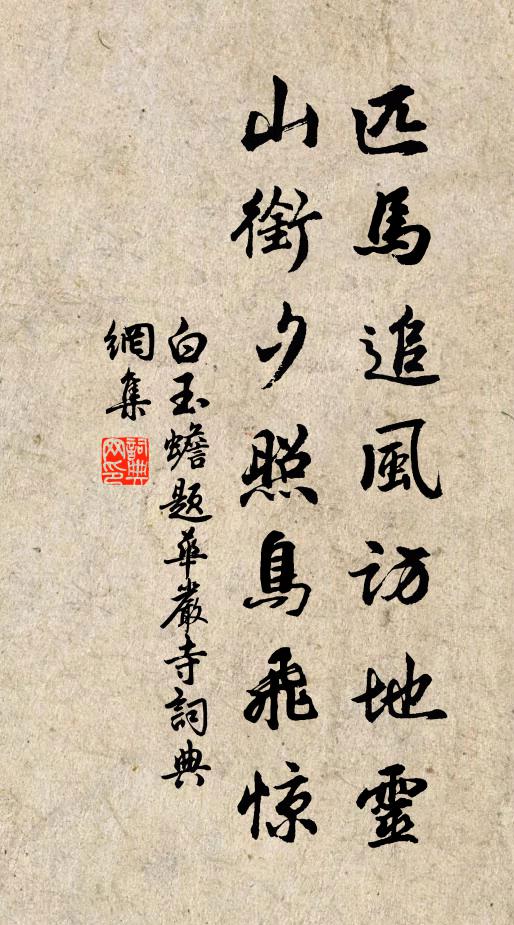 匹馬追風訪地靈
山銜夕照鳥飛惊
白玉蟾題華嚴寺詞典
網集
詞典
网印